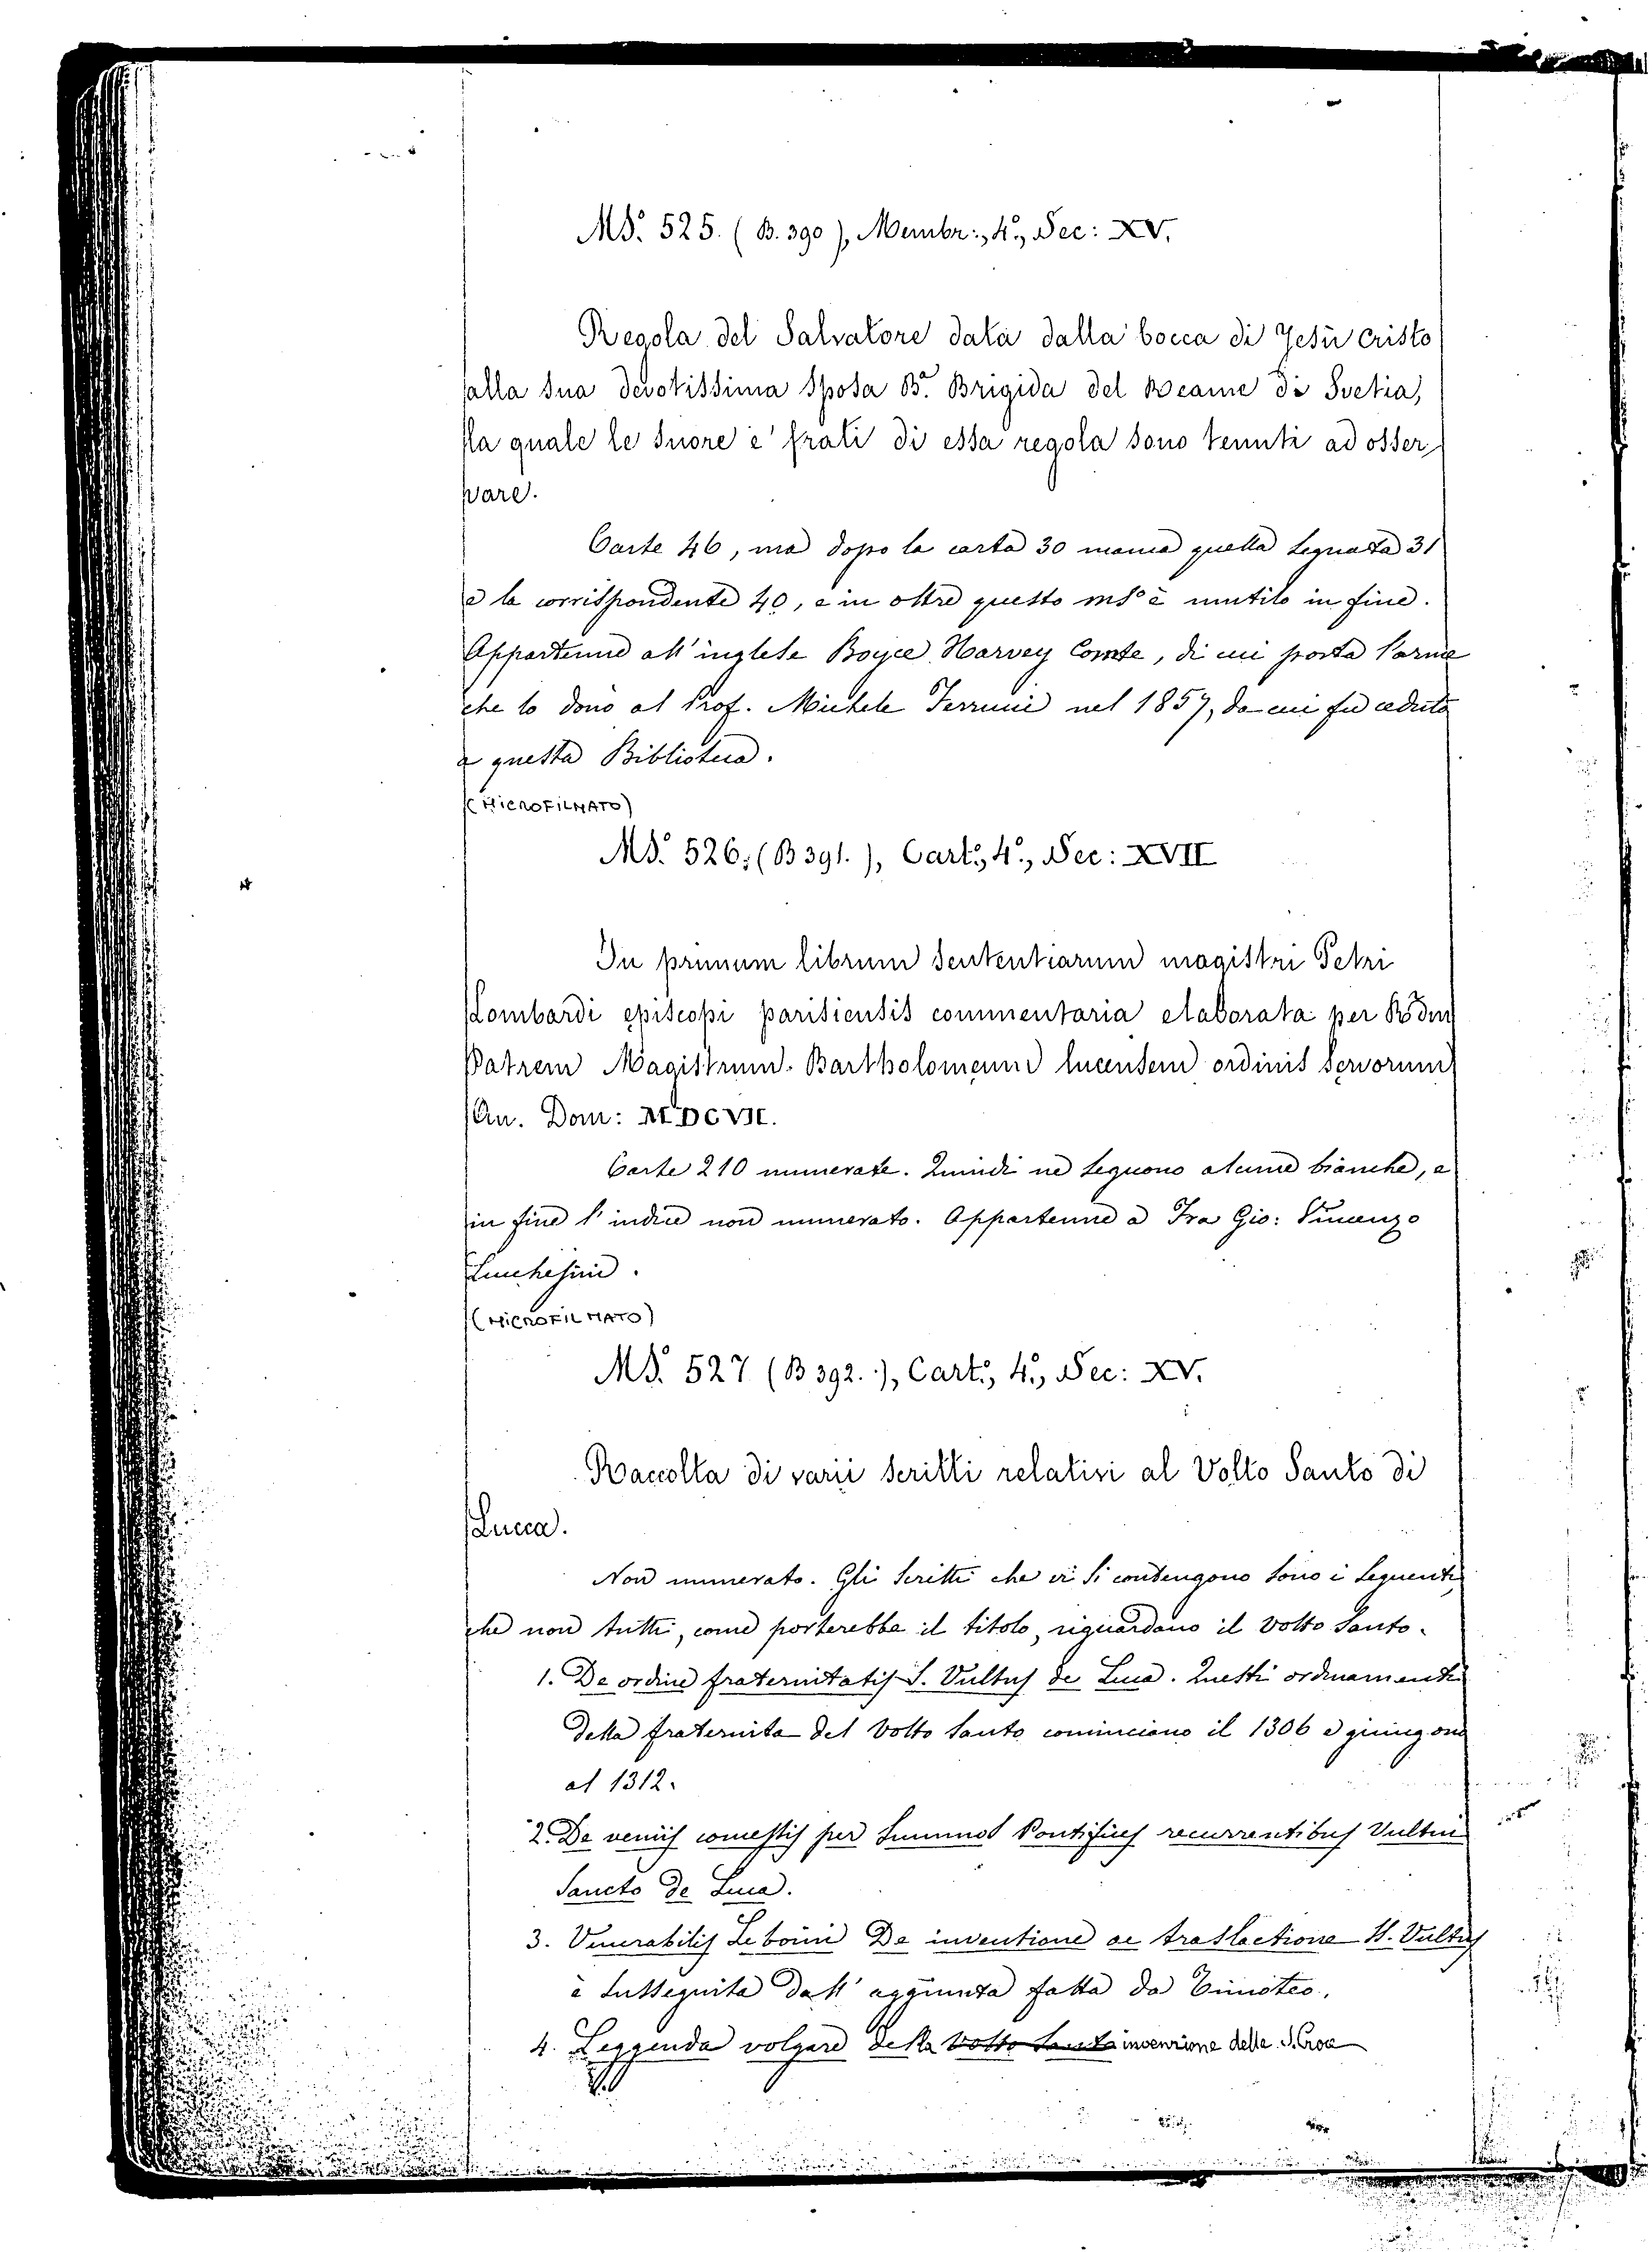 MS. 525. (B. 390), Membr:, 4º, Sec: XV.
Regola del Salvatore data dalla bocca di Jesù cristo
alla sua devotissima sposa B. Brigida del Reame di Svetia,
la quale le suore e' frati di essa regola sono tenuti ad osser
vare.
Carte 46, ma dopo la carta 30 manca quella segnata 31
e la corrispondente 40, e in oltre questo msº è mutilo in fine.
Appartenne all'inglese Boyce Harvey Comte, di cui porta l'arme
che lo donò al Prof. Michele Ferrucci nel 1857, da cui fu ceduto
a questa Biblioteca.
(MICROFILMATO)
MS. 526. (B 391.), Cart:, 4º, Sec: XVII
In primum librum sententiarum magistri Petri
Lombardi episcopi parisiensis commentaria elaborata per Rdum
Patrem Magistrum Bartholomeum lucensem ordinis servorum
An. Dom: MDCVII.
Carte 210 numerate. Quindi ne seguono alcune bianche, e
in fine l'indice non numerato. Appartenne a Fra Gio: Vincenzo
Lucchesini.
(MICROFILMATO)
MS. 527 (B 392.), Cart:, 4º, Sec: XV.
Raccolta di varii scritti relativi al Volto Santo di
Lucca.
Non numerato. Gli scritti che vi si contengono sono i seguenti
che non tutti, come porterebbe il titolo, riguardano il Volto Santo.
1. De ordine fraternitatis S. Vultus de Luca. Questi ordinamenti
della fraternita del Volto Santo cominciano il 1306 e giungono
al 1312.
2. De veniis concessis per summos Pontifices recurrentibus Vultui
Sancto de Luca.
3. Venerabilis Leboini De inventione ac traslactione S. Vultus
è susseguita dall'aggiunta fatta da Timoteo.
4. Leggenda volgare della Volto Santo invenzione della S. Croce